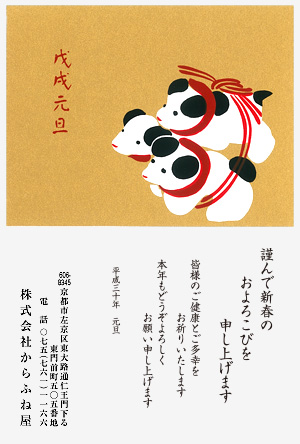 戊戌元旦
謹んで新春の
およろこびを
申し上げます
皆様のご健康とご多幸を
お祈りいたします
本年もどうぞよろしく
お願い申し上げます
平成三十年 元旦
606-
8345
京都市左京区東大路通仁王門下る
東門前町五〇五番地
電話 〇七五(七六一)一一六六
株式会社からふね屋